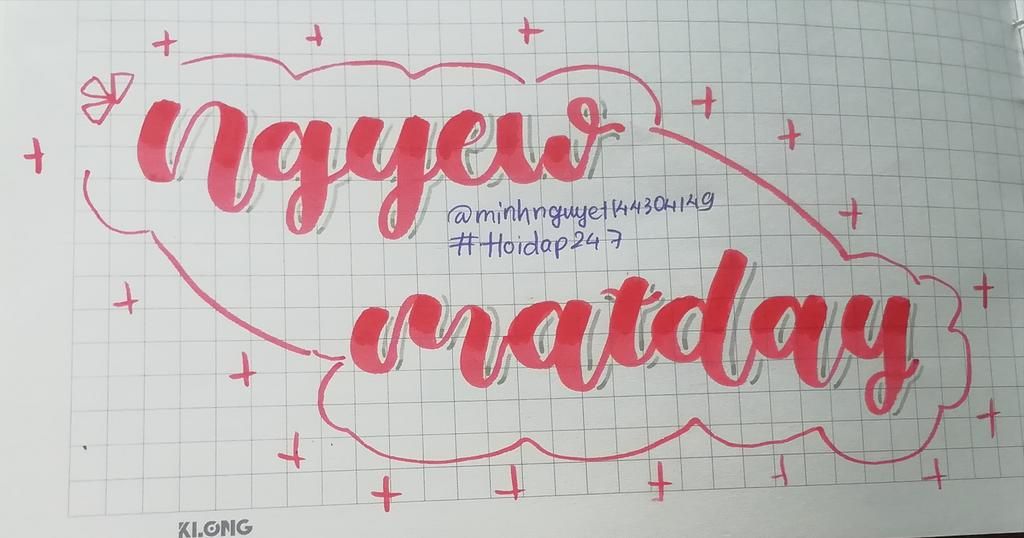 ngyew
@minhnguyet144304149
#Hoidap247
matday
KLONG